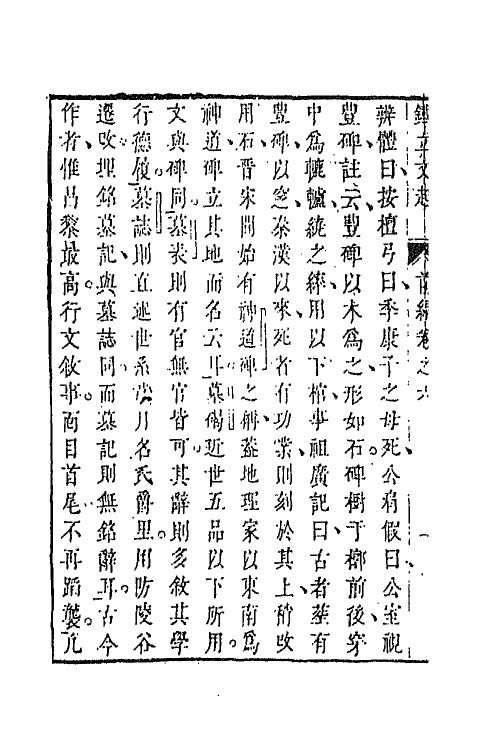 鐵立文起 前編卷之六 一
辨體曰按檀弓曰季康子之母死公肩假曰公室視
豐碑註云豐碑以木爲之形如石碑樹于槨前後穿
中爲轆轤繞之繂用以下棺事祖廣記曰古者葬有
豐碑以窆秦漢以來死者有功業則刻於其上稍改
用石晋宋間始有神道碑之稱蓋地理家以東南爲
神道碑立其地而名云耳墓碣近世五品以下所用
文與碑同墓表則有官無官皆可其辭則多敘其學
行德履墓誌則直述世系歲月名氏爵里用防陵谷
遷改埋銘墓記與墓誌同而墓記則無銘辭耳古今
作者惟昌黎最高行文敘事面目首尾不再蹈襲凡